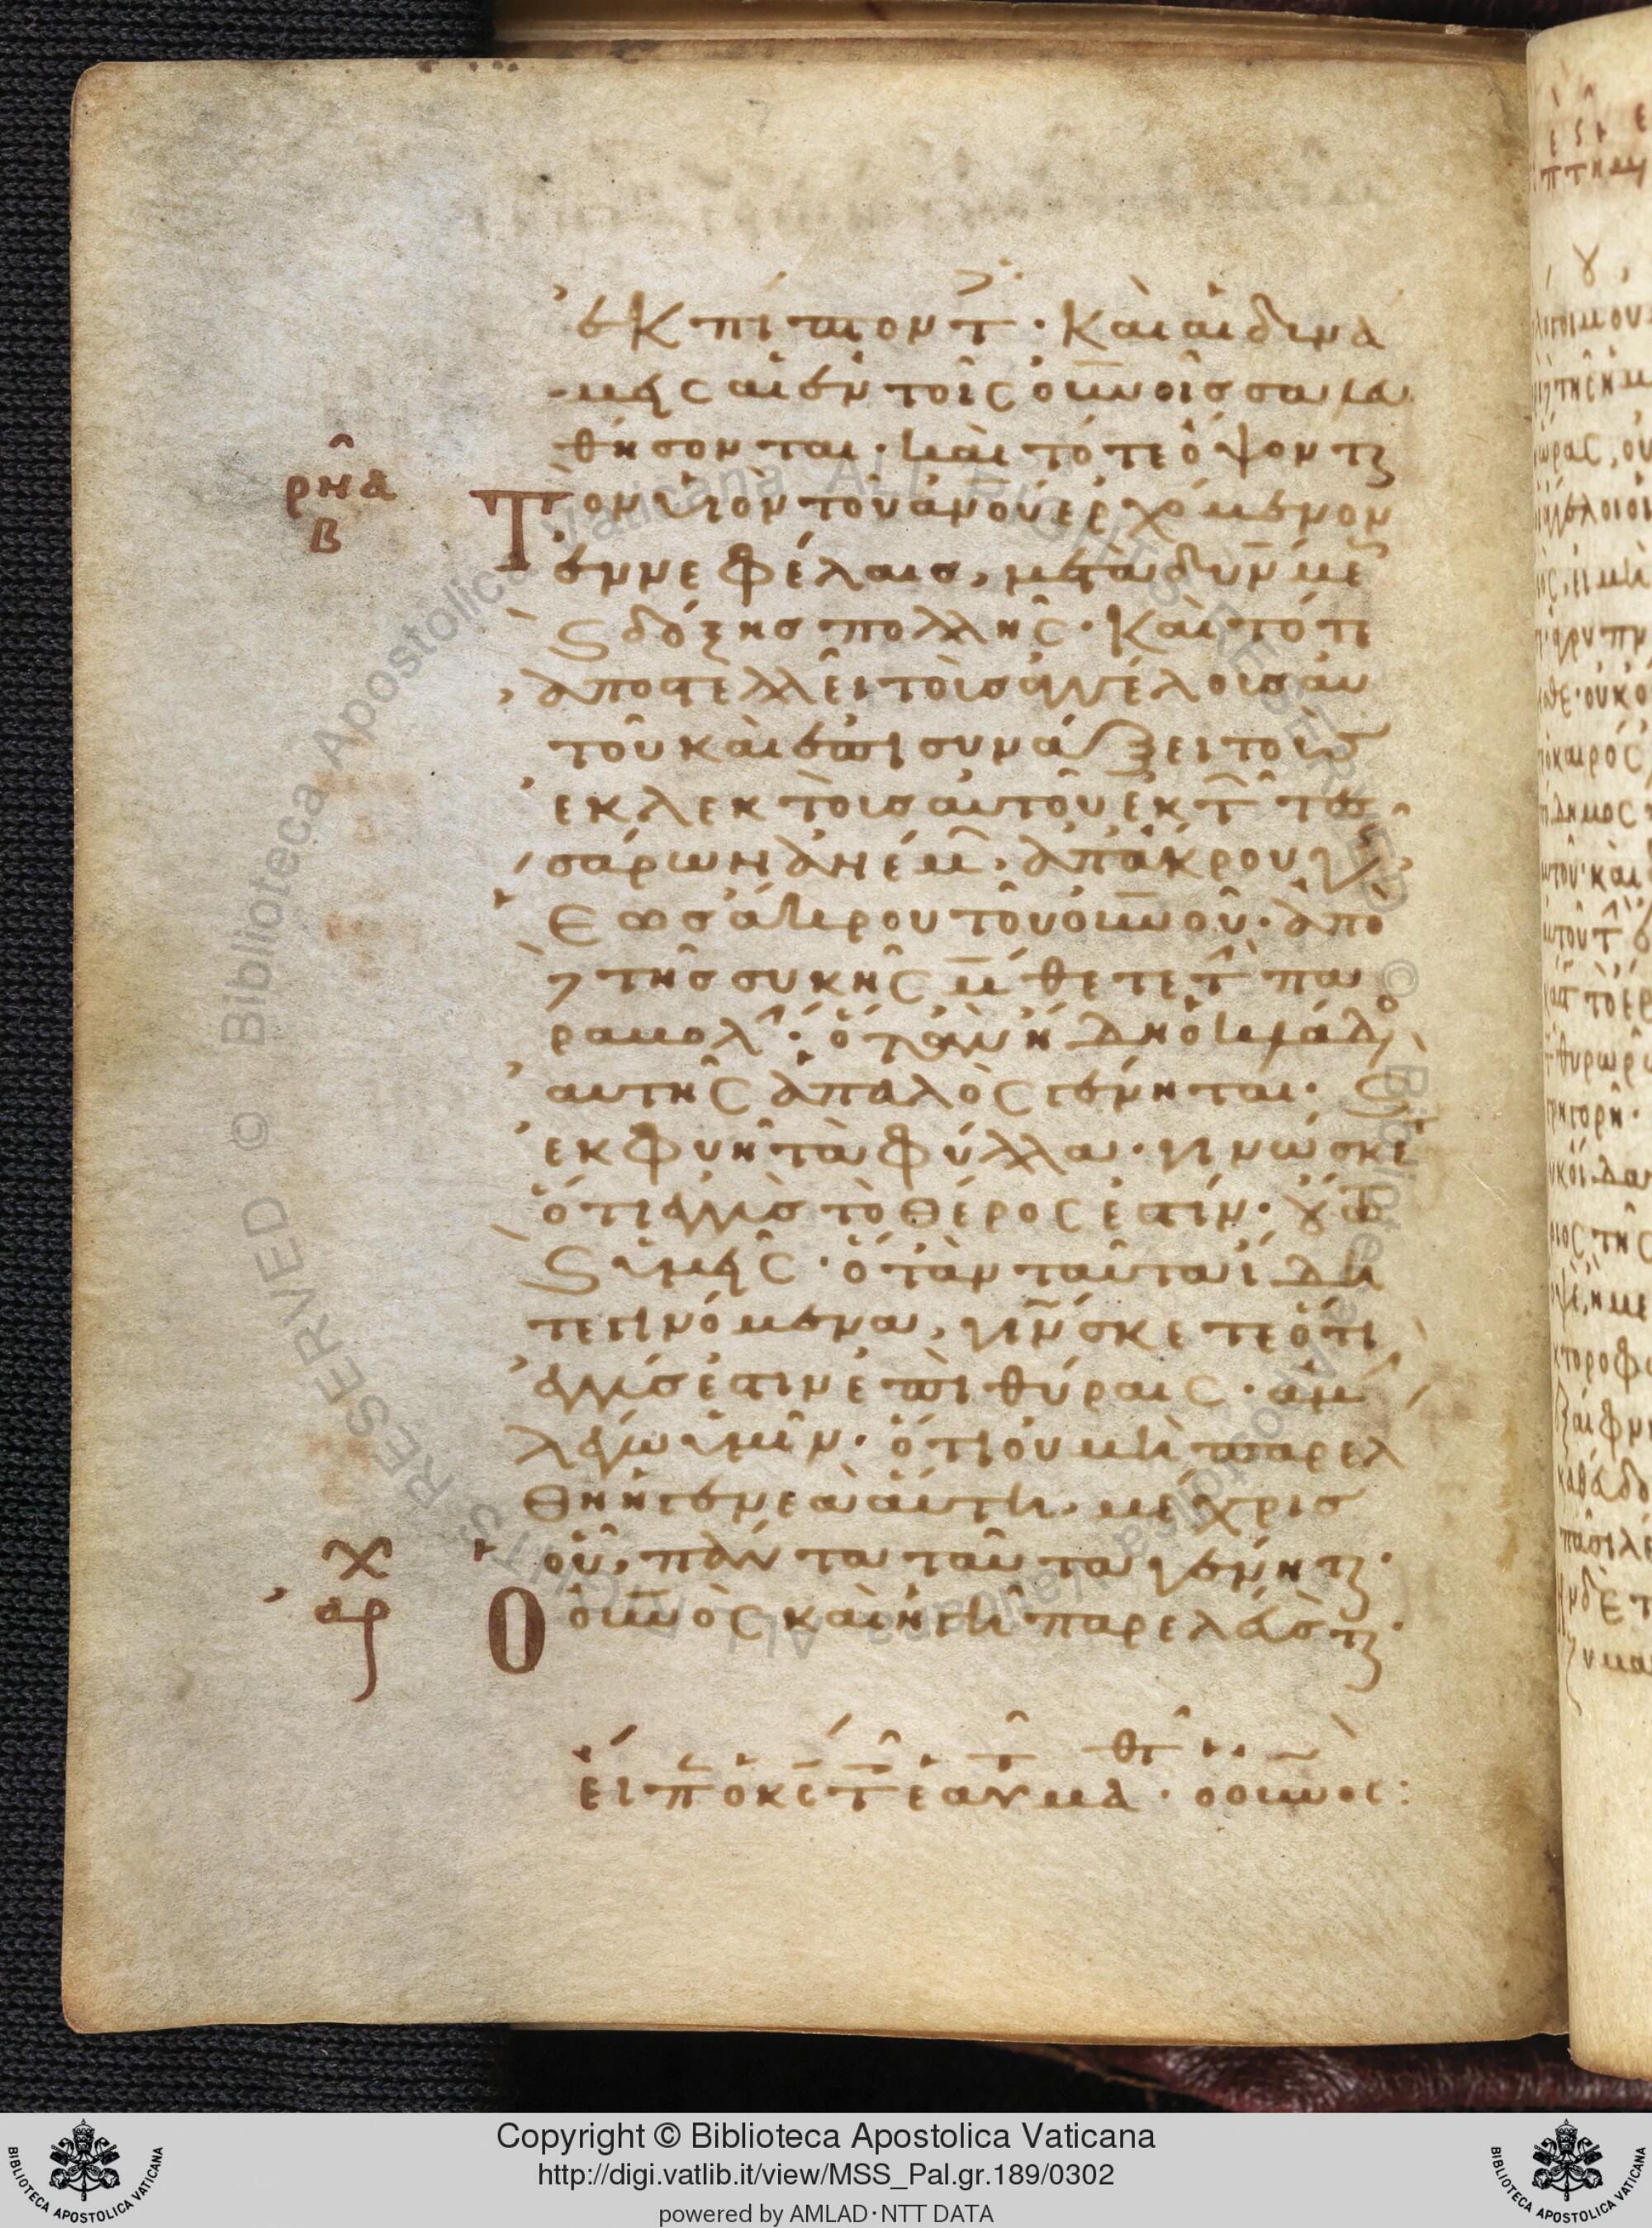 ἐκπίπτοντ · καὶ αἱ δυνα
μεις αἱ ἐν τοῖς οὐνοῖς σαλευ
θήσονται · καὶ τότε ὄψοντ
ρπα
β
Τὸν υἱὸν τοῦ ἀνοῦ ἐρχόμενον
ἐν νεφέλαις, μετὰ δυνάμε
ς δόξης πολλῆς · καὶ τότε
ἀποστελλεῖ τοὺς ἀγγέλους αὐ
τοῦ καὶ ἐπισυνάξει τοὺς
ἐκλεκτοὺς αὐτοῦ ἐκ τ τεσ
σάρων ἀνέμ · ἀπ' ἄκρου γῆς
ἕως ἄκρου τοῦ οὐνοῦ · ἀπὸ
τῆς συκῆς μάθετε τ πα
ραβολ · ὅταν ἤδη ὁ κλάδο
αὐτῆς ἁπαλὸς γένηται · ς
ἐκφύῃ τὰ φύλλα · γινώσκε
ὅτι ἐγγὺς τὸ θέρος ἐστίν · οὕτ
ς ὑμεῖς · ὅταν ταῦτα ἴδη
τε γινόμενα, γινώσκετε ὅτι
ἐγγύς ἐστιν ἐπὶ θύραις · ἀμ
λέγω ὑμῖν · ὅτι οὐ μὴ παρελ
θῃ ἡ γενεὰ αὕτη · μέχρις
οὗ, πάντα ταῦτα γένητ ·
Χ
αρ
Ὁ οὐνὸς καὶ ἡ γῆ παρελεύσοντ ·
εἶπ ὁ κς τ ἑαυτ μαθτ · ὁ οὐνος :
Copyright © Biblioteca Apostolica Vaticana
http://digi.vatlib.it/view/MSS_Pal.gr.189/0302
powered by AMLAD·NTT DATA
BIBLIOTECA APOSTOLICA VATICANA
BIBLIOTECA APOSTOLICA VATICANA